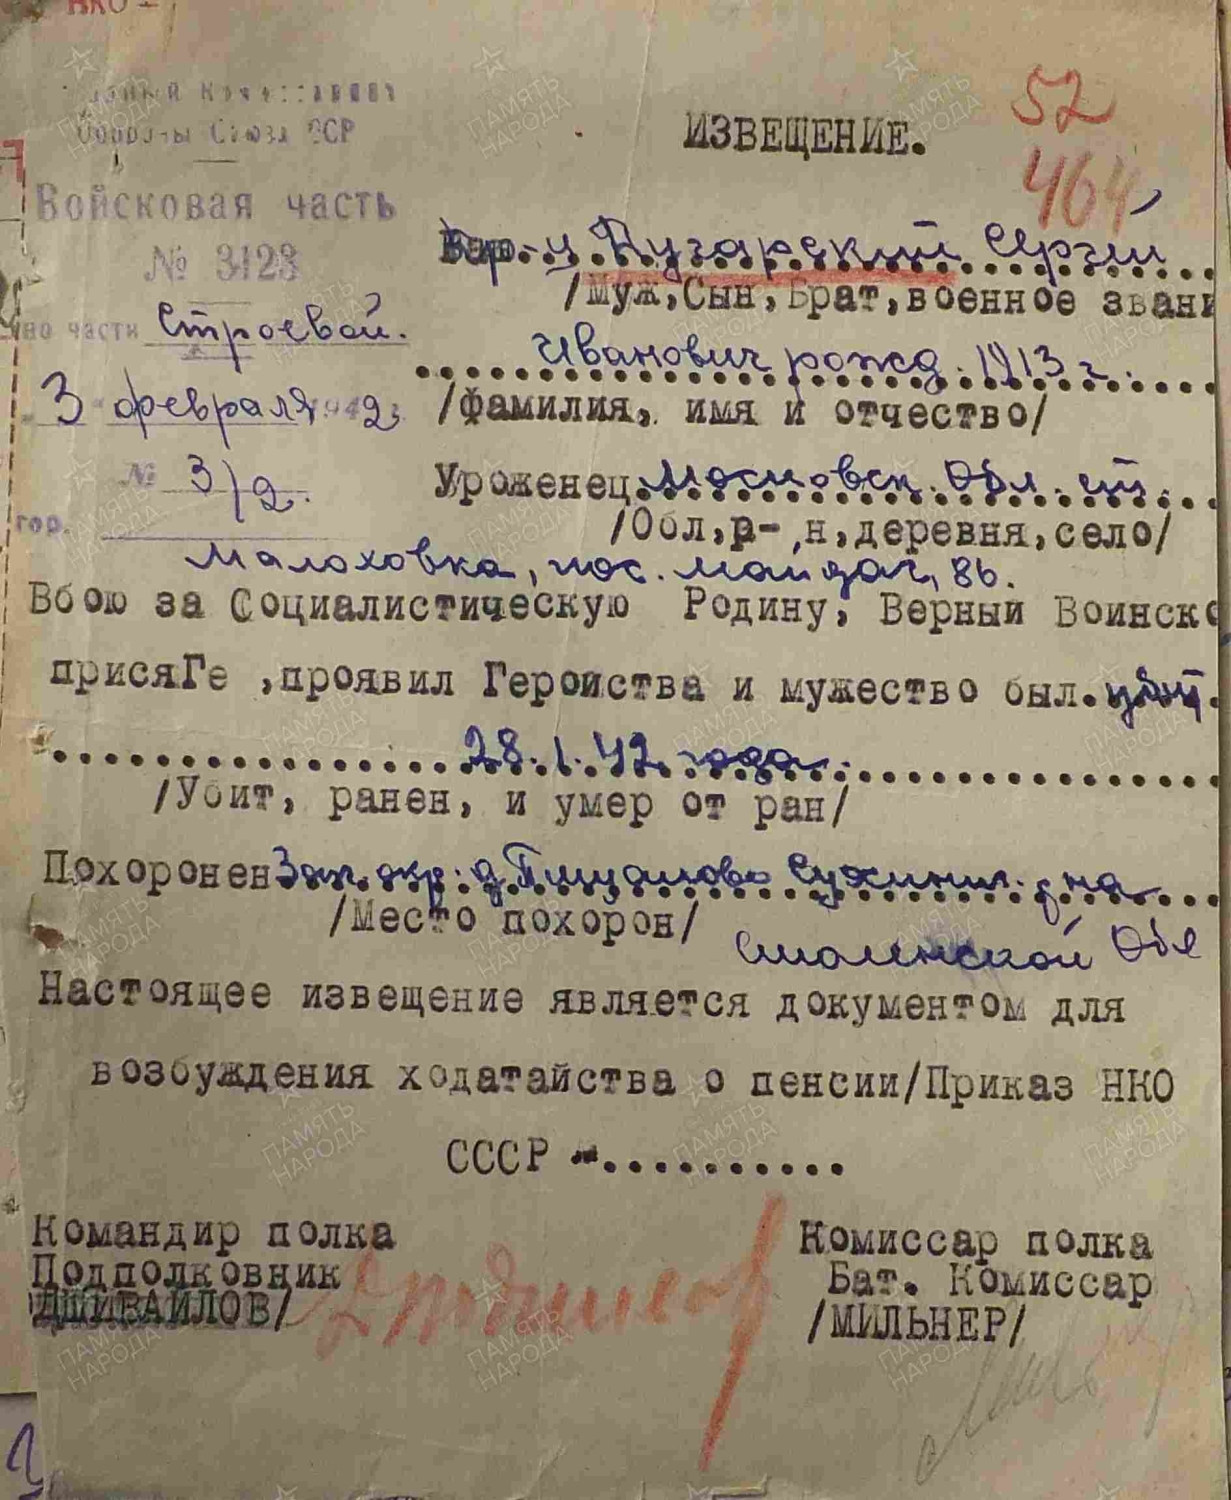 НКО
Народный Комиссариат
Обороны Союза ССР
Войсковая часть
№ 3123
по части Строевой.
"3" февраля 1942
№ 3/2.
гор.
52
464
ИЗВЕЩЕНИЕ.
Пугарский Сергей
/Муж,Сын,Брат,военное звани
Иванович рожд. 1913 г.
/фамилия, имя и отчество/
Уроженец Московск. Обл. ст.
/Обл,р-н,деревня,село/
Малоховка, пос. Майдач, 86.
Вбою за Социалистическую Родину, Верный Воинско
присяГе ,проявил Героиства и мужество был.убит.
28.1.42 года.
/Убит, ранен, и умер от ран/
Похоронен Зап. окр. д. Сухинич. р-на
/Место похорон/
Смоленской Обл
Настоящее извещение является документом для
возбуждения ходатайства о пенсии/Приказ НКО
СССР -..........
Командир полка
Подполковник
ДШИВАЙЛОВ/
Комиссар полка
Бат. Комиссар
/МИЛЬНЕР/
ПАМЯТЬ НАРОДА